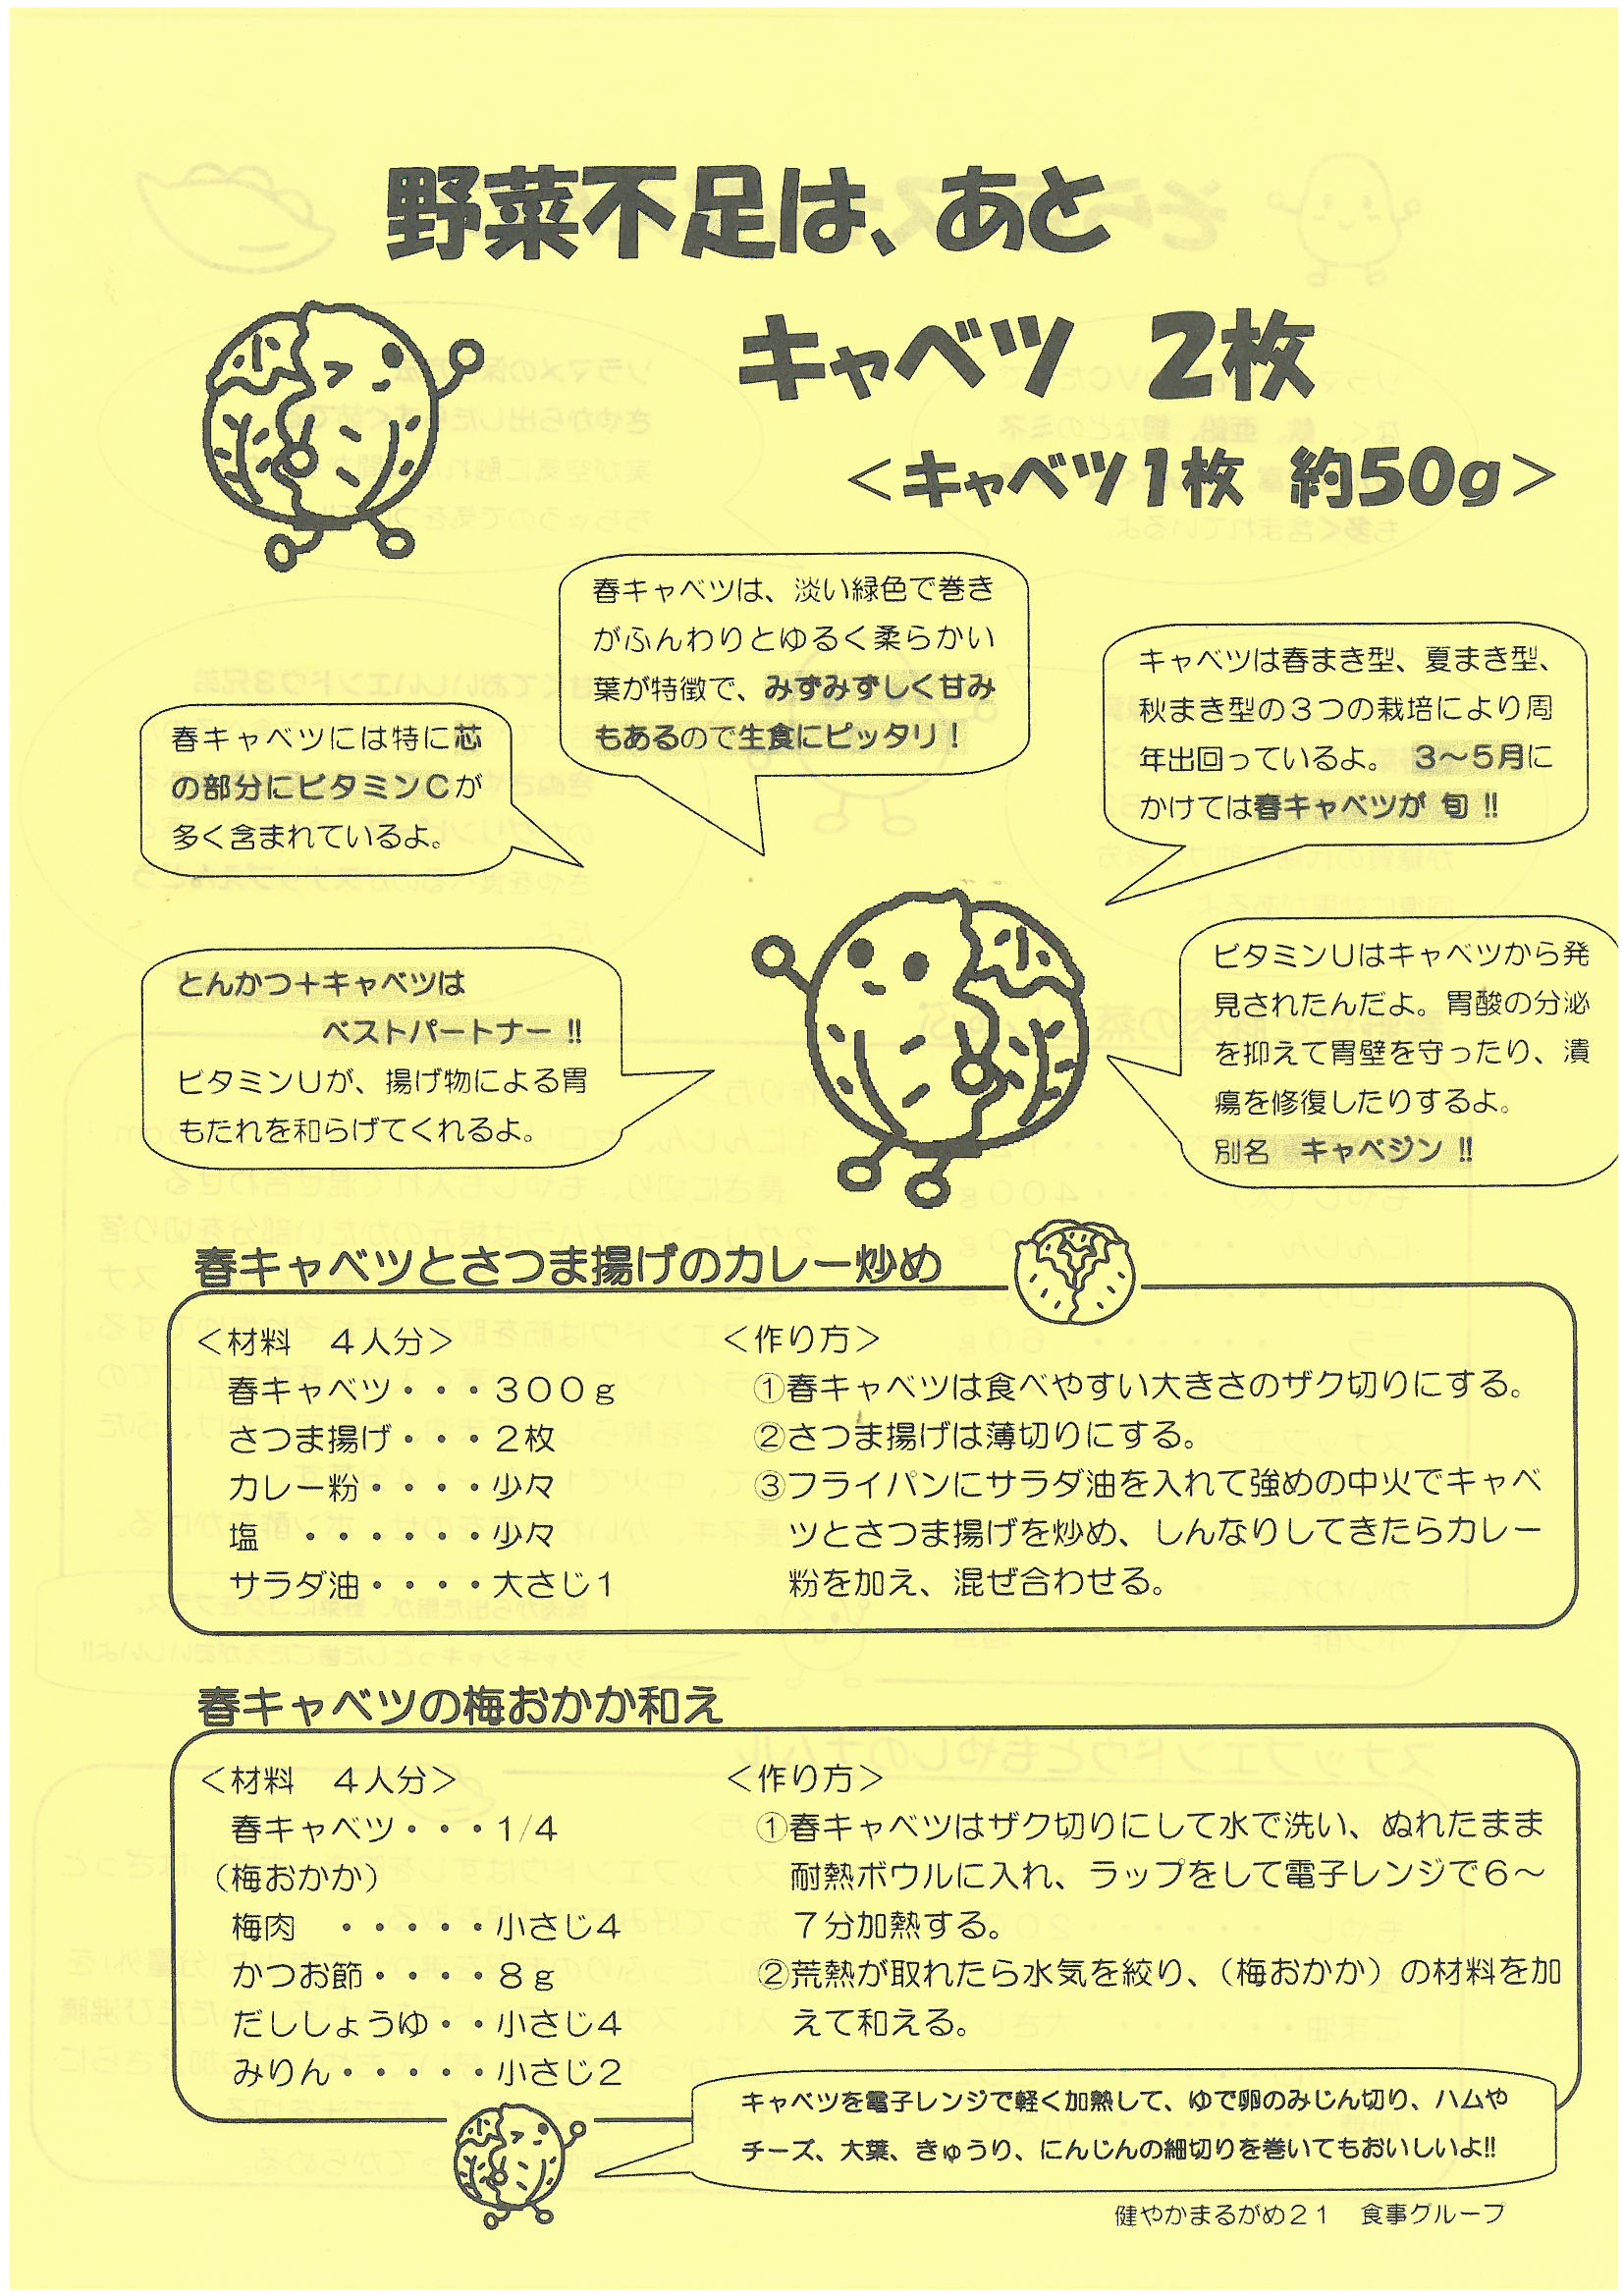 野菜不足は、あと
キャベツ 2枚
＜キャベツ1枚 約50g＞
春キャベツは、淡い緑色で巻き
がふんわりとゆるく柔らかい
葉が特徴で、みずみずしく甘み
もあるので生食にピッタリ！
キャベツは春まき型、夏まき型、
秋まき型の３つの栽培により周
年出回っているよ。 ３～５月に
かけては春キャベツが 旬 !!
春キャベツには特に芯
の部分にビタミンＣが
多く含まれているよ。
とんかつ＋キャベツは
ベストパートナー !!
ビタミンＵが、揚げ物による胃
もたれを和らげてくれるよ。
ビタミンＵはキャベツから発
見されたんだよ。胃酸の分泌
を抑えて胃壁を守ったり、潰
瘍を修復したりするよ。
別名 キャベジン !!
春キャベツとさつま揚げのカレー炒め
＜材料 ４人分＞
春キャベツ・・・３００ｇ
さつま揚げ・・・２枚
カレー粉・・・・少々
塩 ・・・・・・少々
サラダ油・・・・大さじ１
＜作り方＞
①春キャベツは食べやすい大きさのザク切りにする。
②さつま揚げは薄切りにする。
③フライパンにサラダ油を入れて強めの中火でキャベ
ツとさつま揚げを炒め、しんなりしてきたらカレー
粉を加え、混ぜ合わせる。
春キャベツの梅おかか和え
＜材料 ４人分＞
春キャベツ・・・1/4
（梅おかか）
梅肉 ・・・・・小さじ４
かつお節・・・・８ｇ
だししょうゆ・・小さじ４
みりん・・・・・小さじ２
＜作り方＞
①春キャベツはザク切りにして水で洗い、ぬれたまま
耐熱ボウルに入れ、ラップをして電子レンジで６～
７分加熱する。
②荒熱が取れたら水気を絞り、（梅おかか）の材料を加
えて和える。
キャベツを電子レンジで軽く加熱して、ゆで卵のみじん切り、ハムや
チーズ、大葉、きゅうり、にんじんの細切りを巻いてもおいしいよ!!
健やかまるがめ２１ 食事グループ